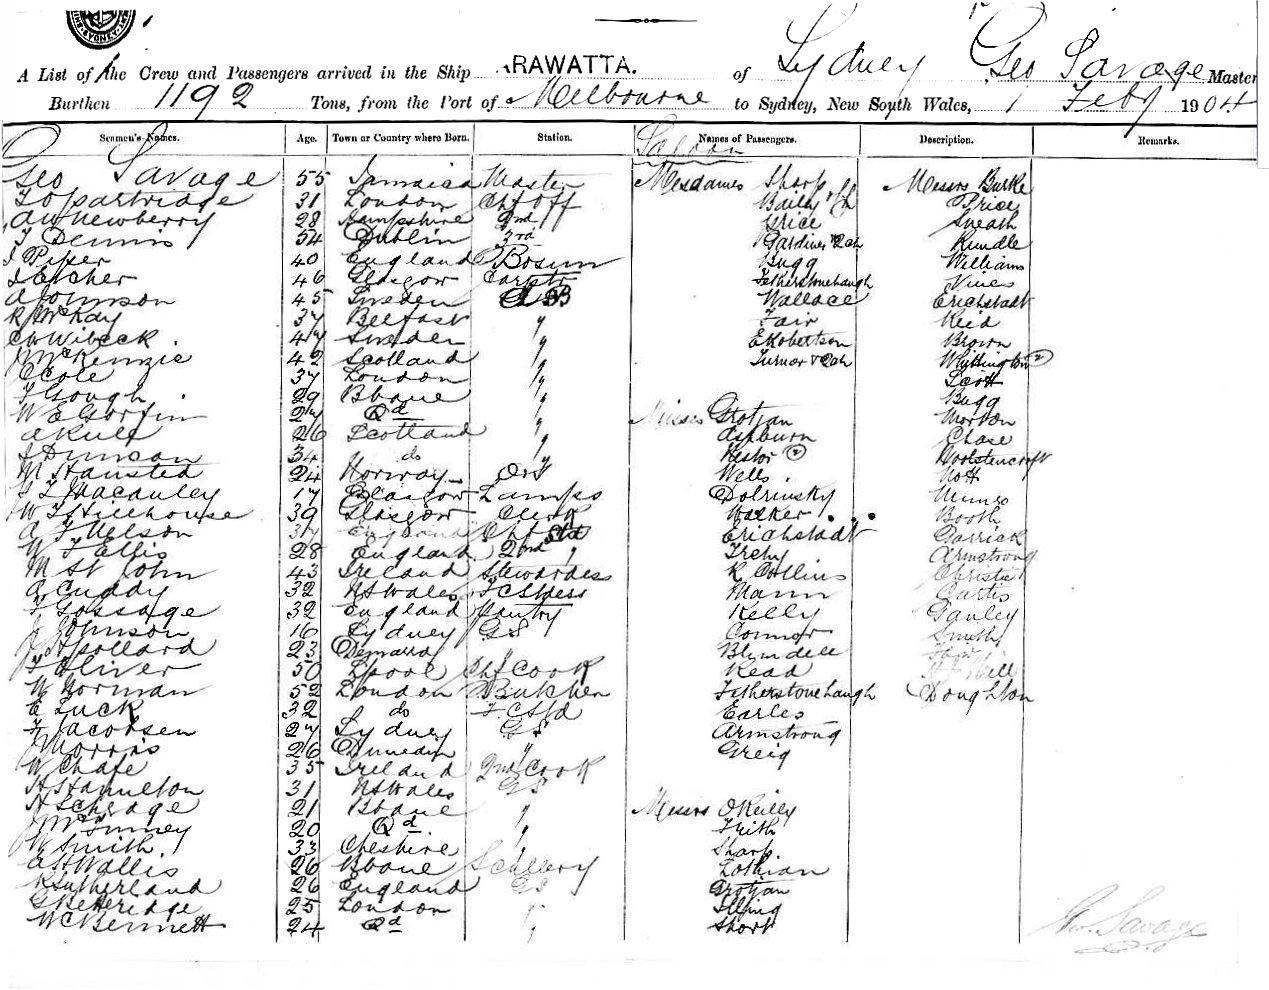 SYDNEY
A List of the Crew and Passengers arrived in the Ship ARAWATTA. of Sydney Geo Savage Master
Burthen 1192 Tons, from the Port of Melbourne to Sydney, New South Wales, 1 Feby 1904
Seamen's Names. Age. Town or Country where Born. Station. Names of Passengers. Description. Remarks.
Saloon
Geo Savage 55 Jamaica Master Mesdames Sharp Messrs Burke
Partridge 31 London Chf Off Baily Price
A W Newberry 28 Hampshire 2nd Grice Sneath
T Dennis 54 Dublin 3rd Gardiner Rundle
J Piper 40 England Bosun Bugg Williams
Archer 46 Glasgow Carptr Fetherstonehaugh Vines
A Johnson 45 Sweden A B Wallace Erichstadt
R McKay 37 Belfast " Fair Reid
C W Wibeck 47 Sweden " E Robertson Brown
McKenzie 42 Scotland " Turner Whittington 2
C Cole 37 London " Scott
T Gough 29 Bbane " Bugg
W E Goffin 27 Qd " Misses Grotjan Morton
A Rule 26 Scotland " Ashburn Chase
J Duncan 34 do " Nestor 2 Woolstencroft
M Hansted 24 Norway OS Wells Nott
Macauley 17 Glasgow Lamps Dolrinsky Munro
W T Hillhouse 39 Glasgow Clerk Walker Booth
A J Nelson 37 England Chf Std Erichstadt Garrick
W T Ellis 28 England 2nd " Trehy Armstrong
M St John 43 Ireland Stewardess R Collins Christie
A Cuddy 32 N S Wales F C Stdess Mann Curtis
T Gossage 32 England Pantry Kelly Ganley
J Johnson 16 Sydney GS Connor Smith
Pollard 23 Demarara " Blundell
T Oliver 50 Lpool Chf Cook Read Hill
W Norman 52 London Butcher Fetherstonehaugh Doughton
E Luck 32 do F C Std Earles
T Jacobsen 27 Sydney GS Armstrong
Morris 26 Dunedin " Greig
W Chafe 35 Ireland 2nd Cook
A Hamilton 31 N S Wales GS
A Schrage 21 Bbane " Messrs O'Reilly
20 Qd " Frith
W Smith 33 Cheshire " Sharp
A H Wallis 26 Bbane Scullery Lothian
R Sutherland 26 England GS Grotjan
G Betteridge 25 London " Illing
W C Bennett 24 Qd " Short
Geo. Savage